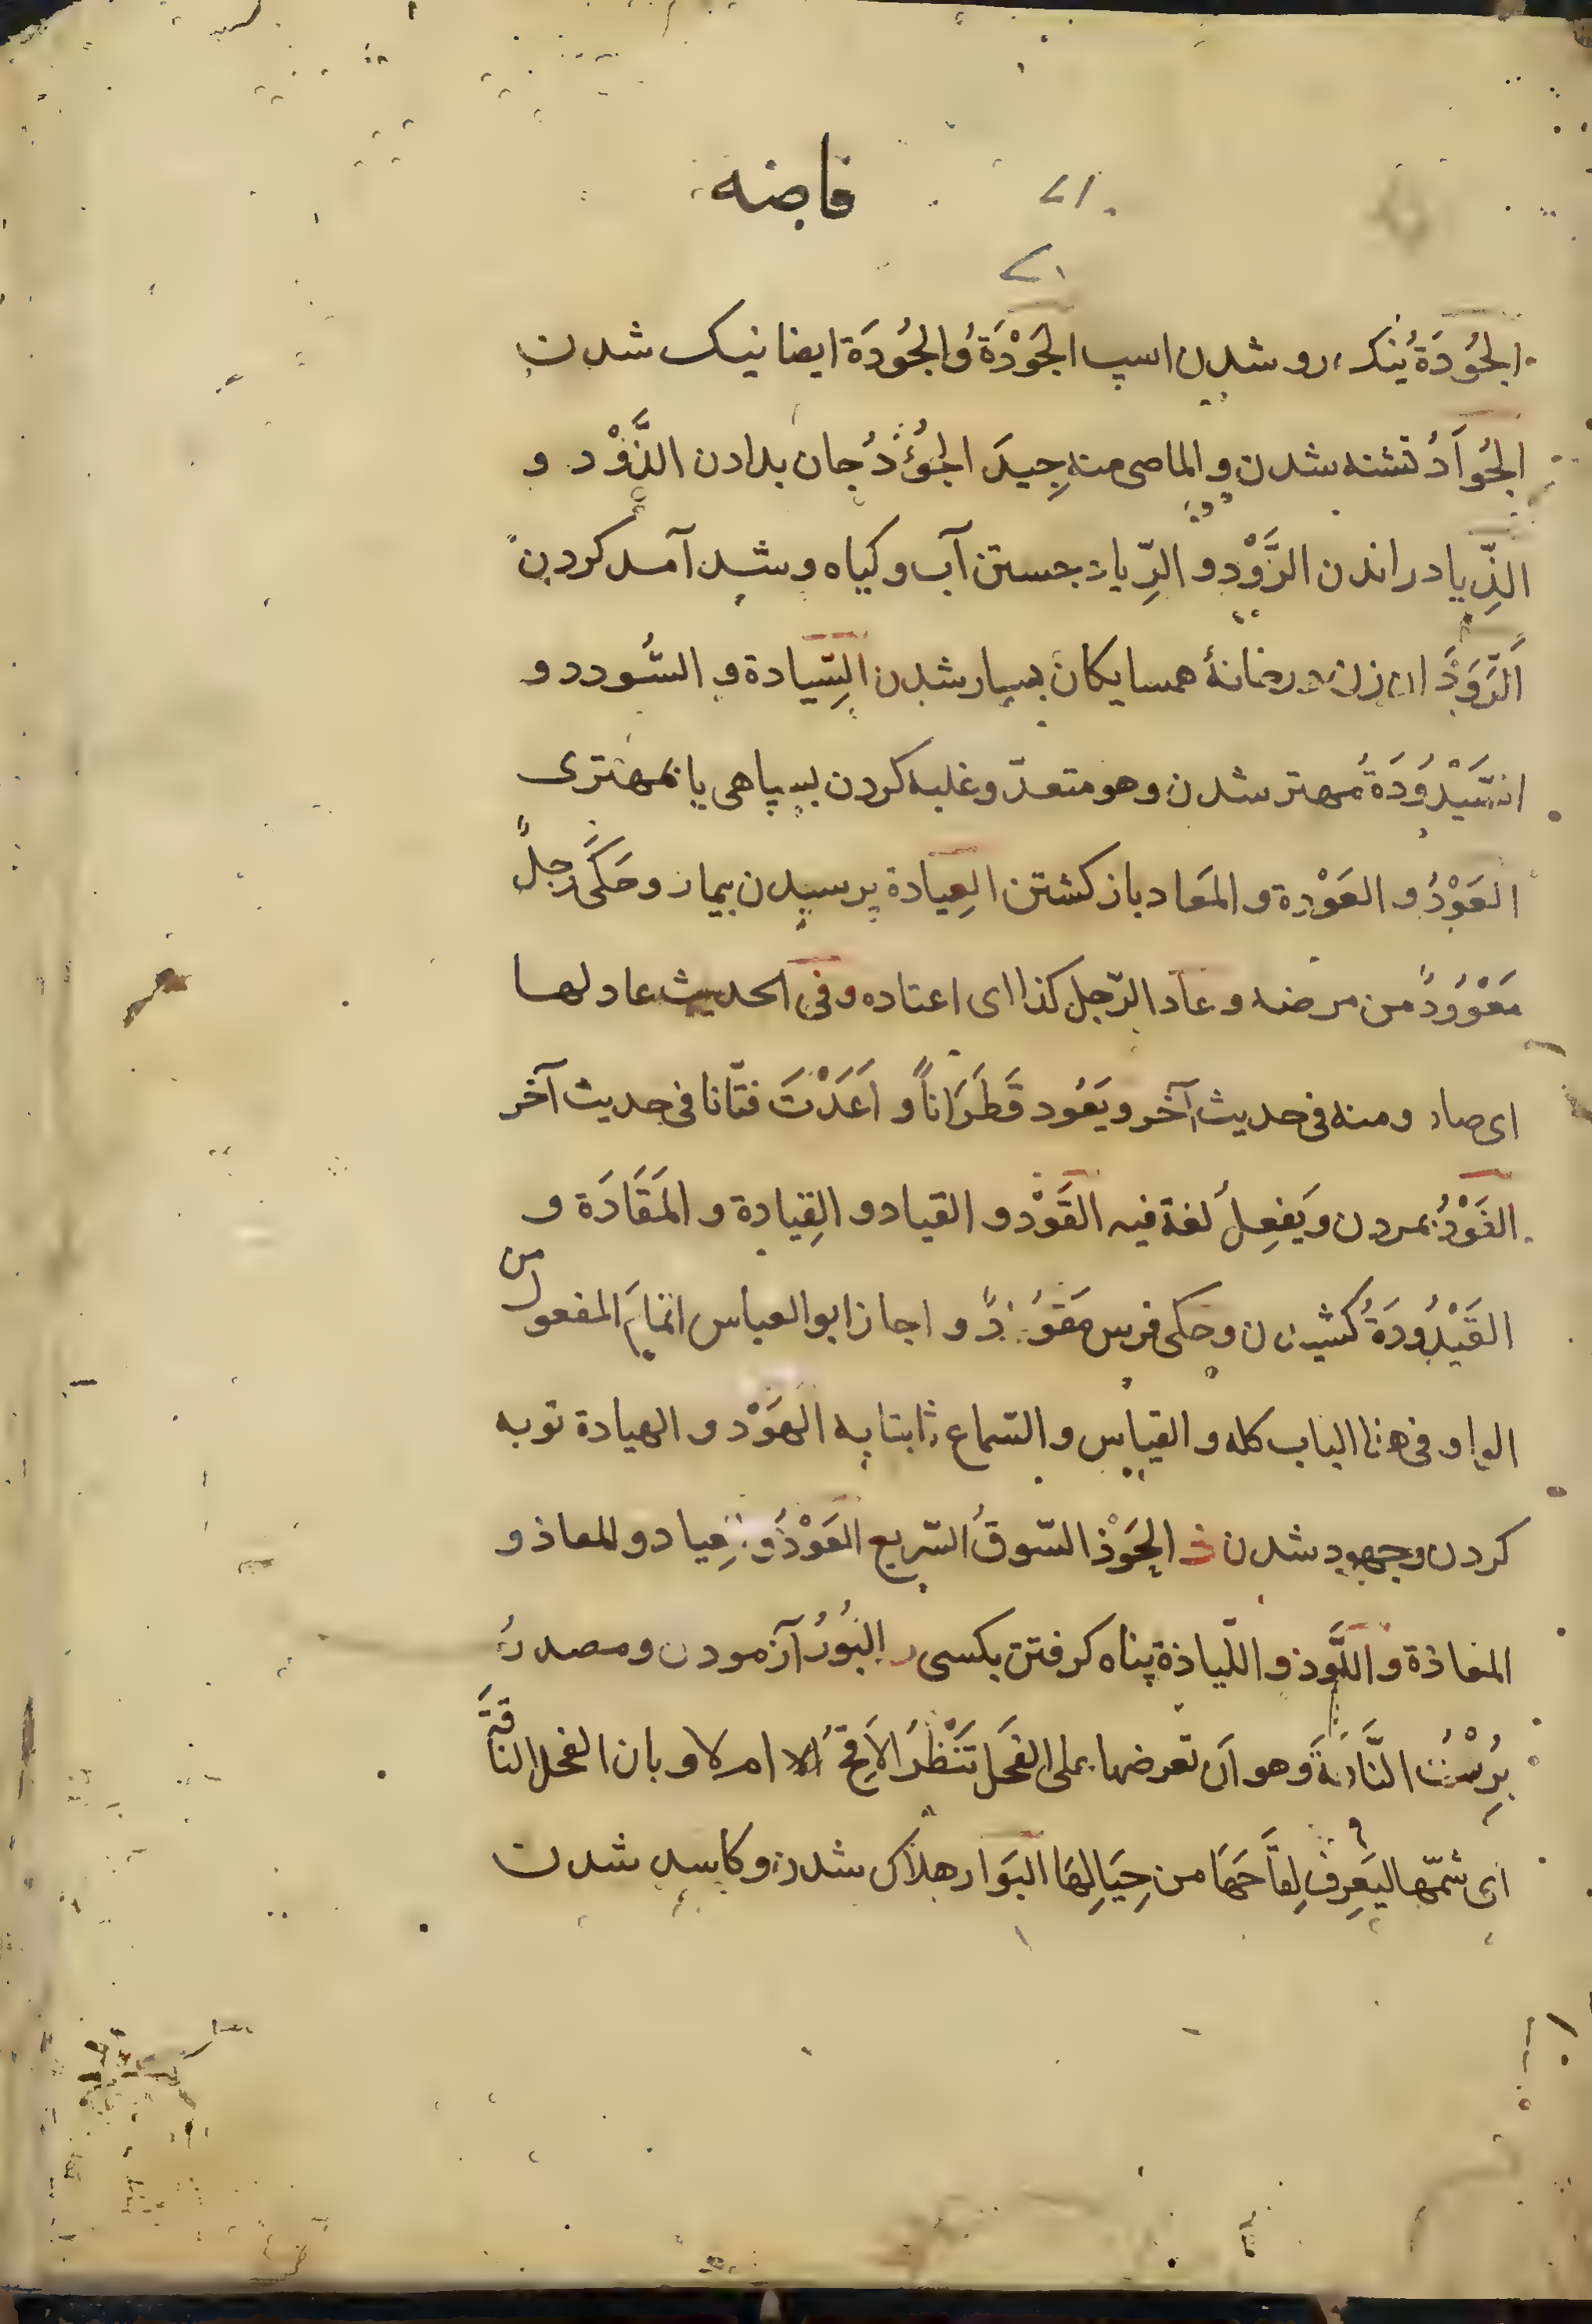 فاضه
الجُودَةُ نیک رو شدن اسپ الجَوْدَةُ والجُودَة ایضا نیک شدن
الجُوَادُ تشنه شدن والماضی منه جِیدَ الجُؤُدُ جان بدادن الذَّوْد و
الذِّیاد راندن الرَّوْد و الرِّیاد جستن آب و کیاه و شد آمد کردن
الرَّوَدَان زن در خانهٔ همسایکان بسیار شدن السِّیادة و السُّودد و
السَّیْدُودَةُ مهتر شدن و هو متعدّ و غلبه کردن بسپاهی یا بمهتری
العَوْدُ و العَوْدة و المَعاد باز کشتن العِیادة پرسیدن بیمار و حَکَی رجلٌ
مَعْوُودٌ من مرضه و عاد الرّجل کذا ای اعتاده و فی الحدیث عاد لها
ای صار ومنه فی حدیث آخر و یَعُود قَطَرَاناً و اَعَدْتَ فتّانا فی حدیث آخر
الفَوْدُ بمردن و یَفعِلُ لغة فیه القَوْد و القیاد و القِیادة و المَقَادَة و
القَیْدُودَةُ کشیدن و حکی فرس مَقوُودٌ و اجاز ابو العباس اتمامَ المفعول من
الواو فی هذا الباب کله و القیاس و السّماع ثابتا به الهَوْد و الهیادة توبه
کردن و جهود شدن ذ الحَوْذ السّوقُ السّریع العَوْذُ و العِیاذ و المعاذ و
المعاذة و اللَّوذ و اللّیاذة پناه کرفتن بکسی ر البُورُ آزمودن و مصدرُ
بُرْتُ النَّاقَةَ و هو اَن تعرضها علی الفَحل تَنْظُرُ اَلاقِحٌ ام لا و بار الفحل الناقَةَ
ای شمّها لیَعرِفَ لِقَاحَهَا من حِیَالِهَا البَوَار هلاک شدن و کاسد شدن